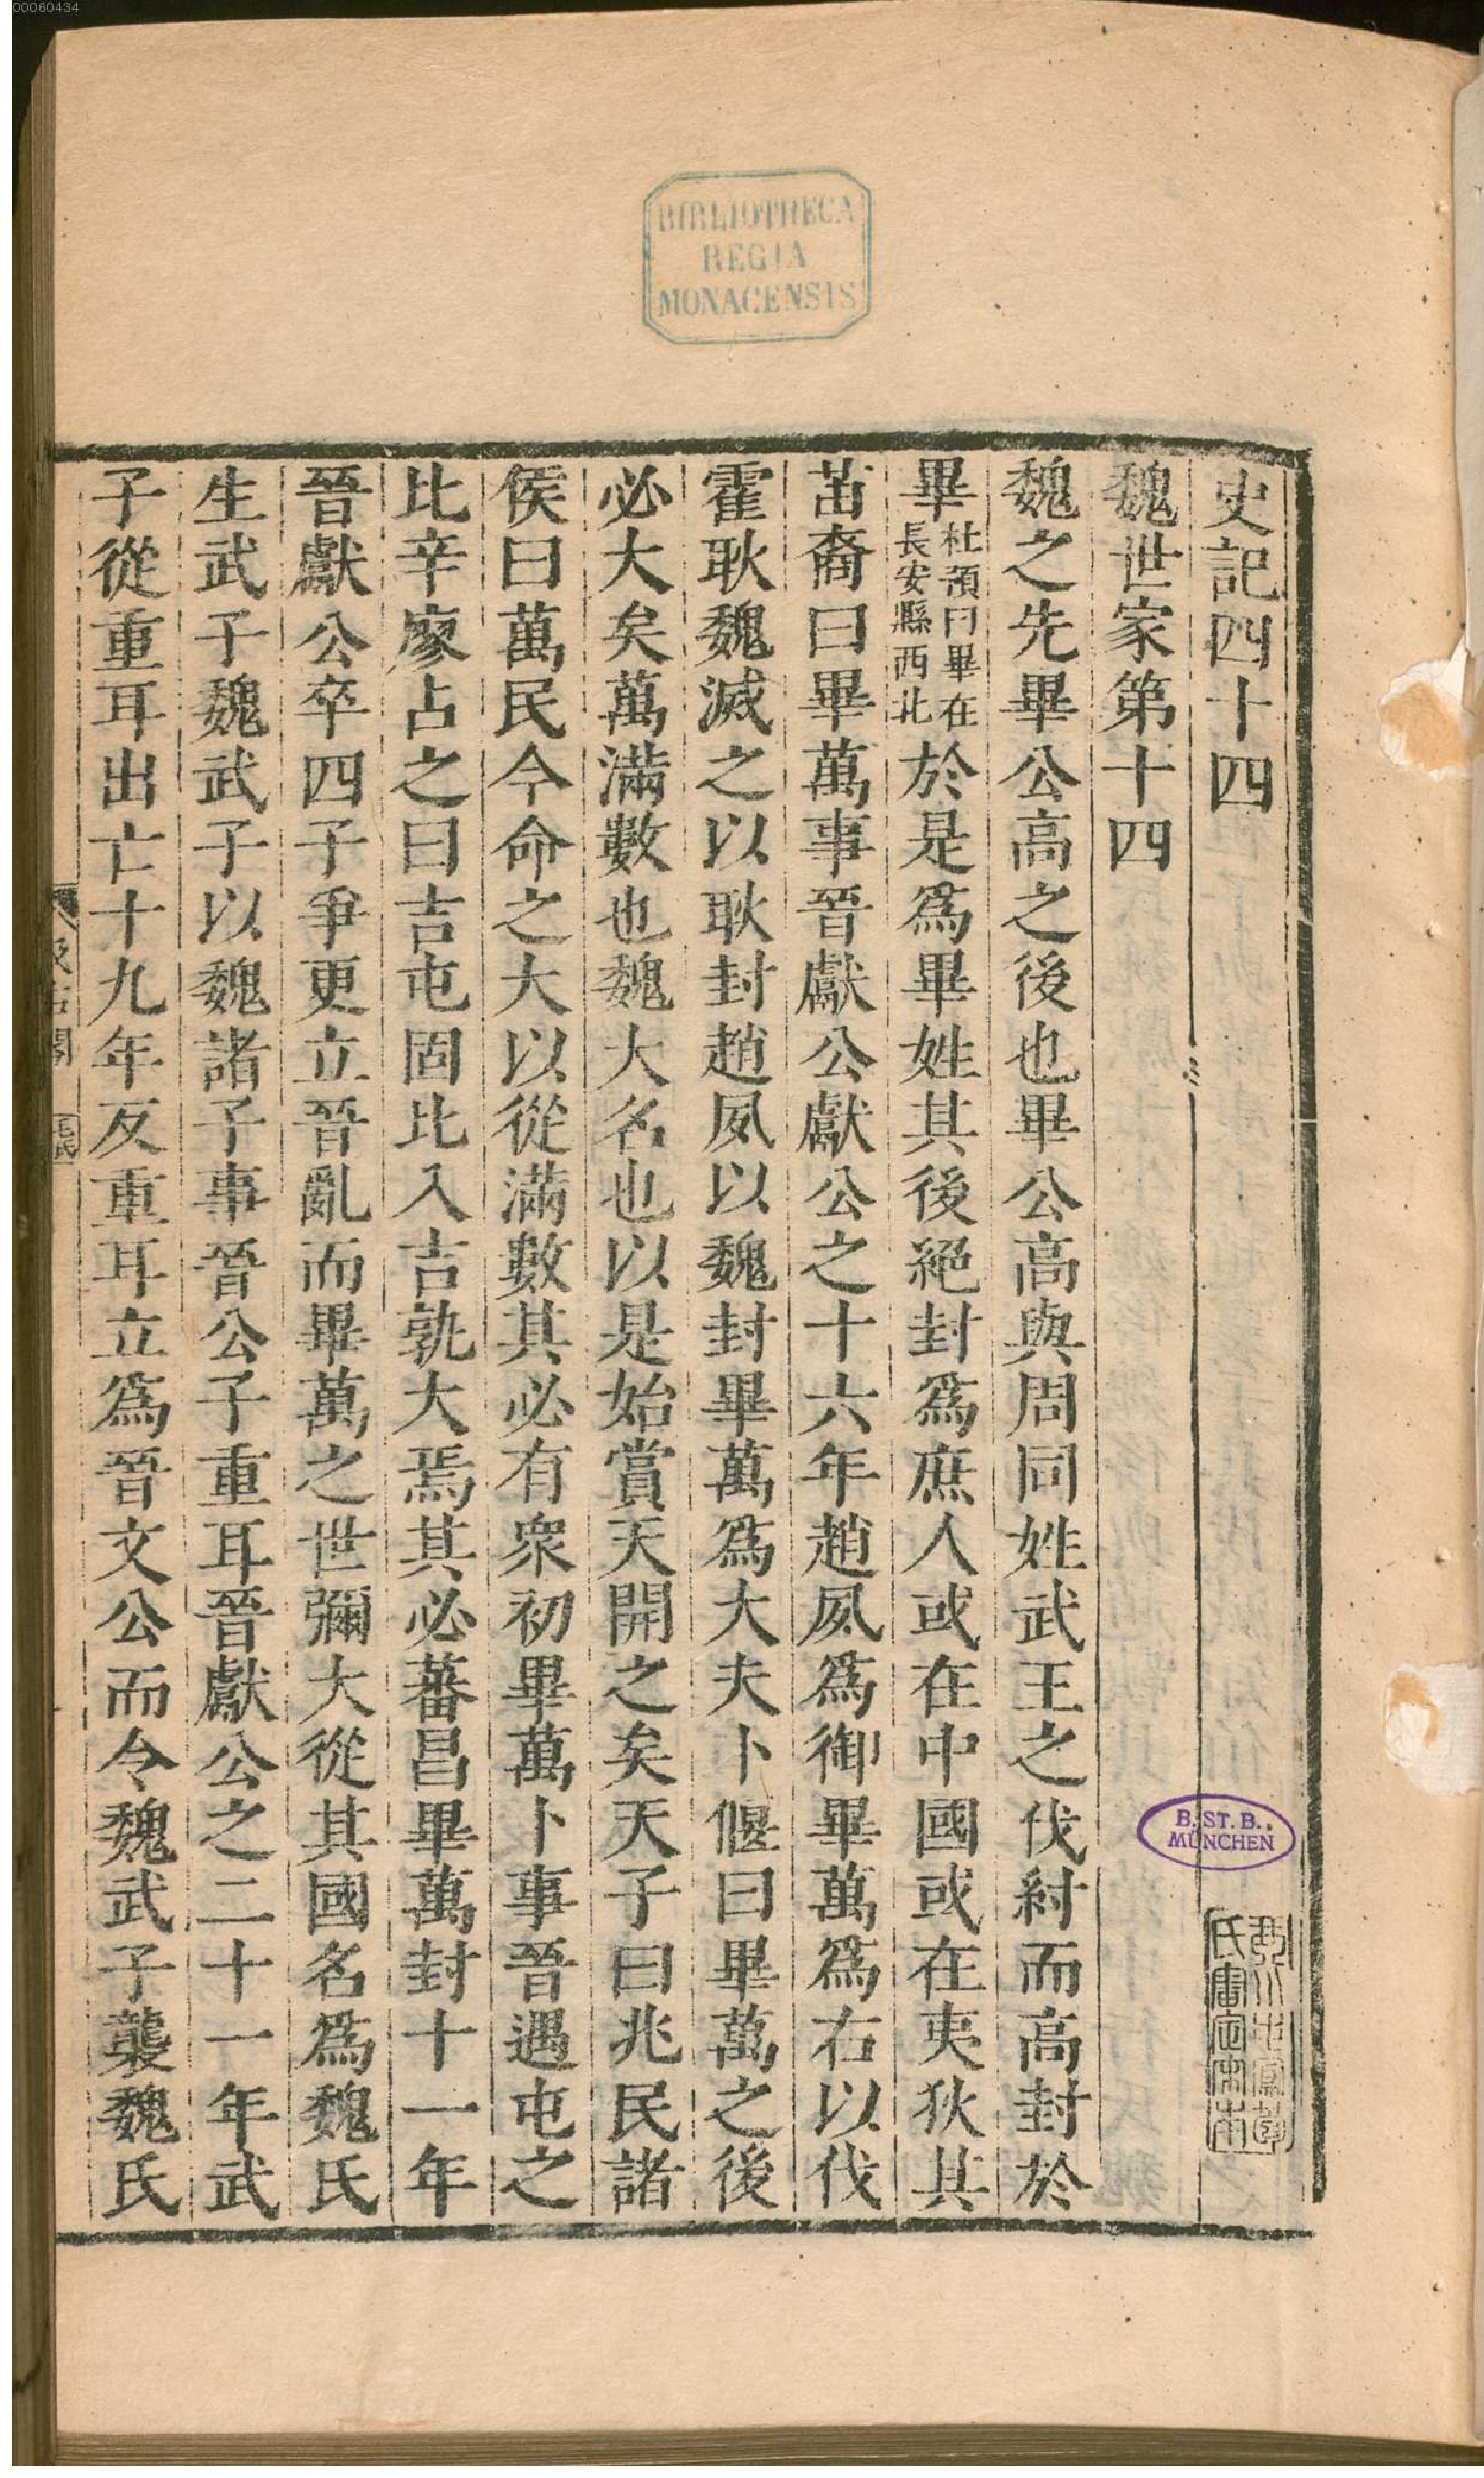 00060434
BIBLIOTHECA
REGIA
MONACENSIS
史記四十四
魏世家第十四
魏之先畢公高之後也畢公高與周同姓武王之伐紂而高封於
畢杜預曰畢在長安縣西北於是爲畢姓其後絕封爲庶人或在中國或在夷狄其
苗裔曰畢萬事晉獻公獻公之十六年趙夙爲御畢萬爲右以伐
霍耿魏滅之以耿封趙夙以魏封畢萬爲大夫卜偃曰畢萬之後
必大矣萬滿數也魏大名也以是始賞天開之矣天子曰兆民諸
侯曰萬民今命之大以從滿數其必有衆初畢萬卜事晉遇屯之
比辛廖占之曰吉屯固比入吉孰大焉其必蕃昌畢萬封十一年
晉獻公卒四子爭更立晉亂而畢萬之世彌大從其國名爲魏氏
生武子魏武子以魏諸子事晉公子重耳晉獻公之二十一年武
子從重耳出亡十九年反重耳立爲晉文公而令魏武子襲魏氏
B. ST. B.
MÜNCHEN